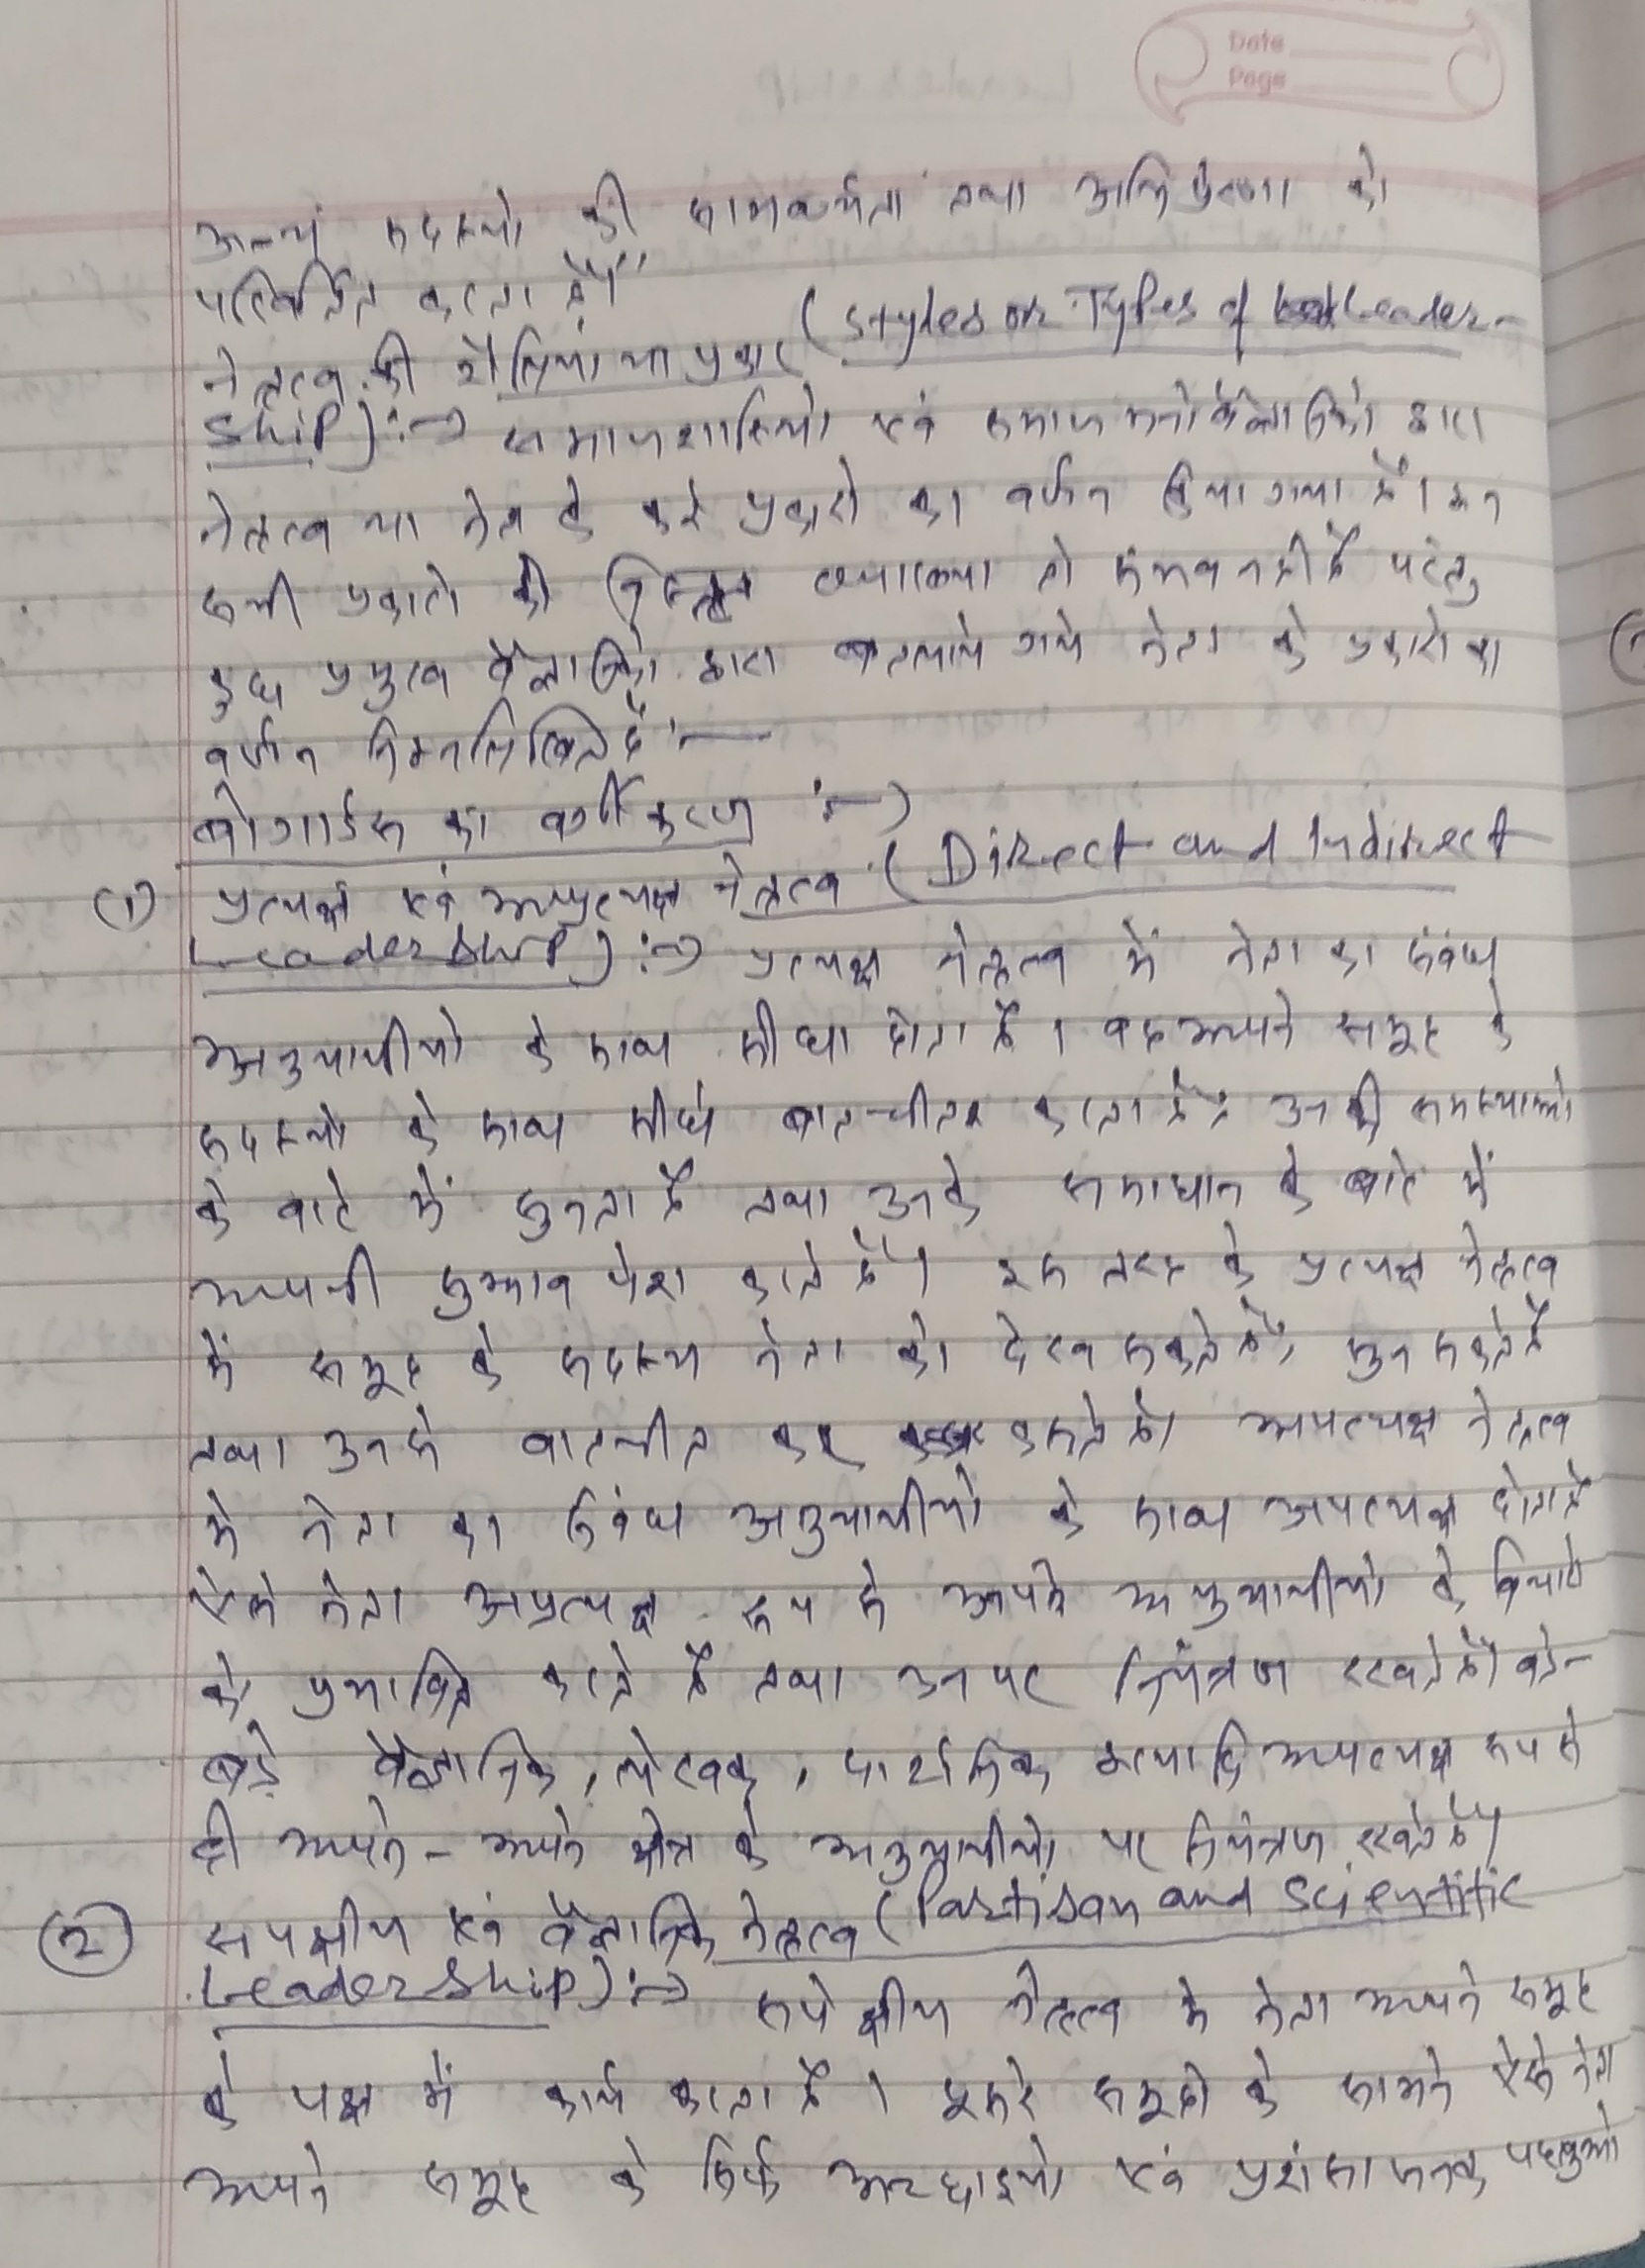 Date
Page
अन्य सदस्यों की सामर्थ्यता तथा अभिप्रेरणा को
परिवर्तित करता है।''
नेतृत्व की शैलियां या प्रकार (Styles or Types of Leader-
Ship) :→ समाजशास्त्रियों एवं समाज मनोवैज्ञानिकों द्वारा
नेतृत्व या नेता के कई प्रकारों का वर्णन किया गया है। इन
सभी प्रकारों की विस्तृत व्याख्या तो संभव नहीं है परंतु
कुछ प्रमुख वैज्ञानिकों द्वारा बतलाये गये नेता के प्रकारों का
वर्णन निम्नलिखित है :—
बोगार्डस का वर्गीकरण :→
(1) प्रत्यक्ष एवं अप्रत्यक्ष नेतृत्व (Direct and Indirect
Leadership) :→ प्रत्यक्ष नेतृत्व में नेता का संबंध
अनुयायीयों के साथ सीधा होता है। वह अपने समूह के
सदस्यों के साथ सीधे बात-चीत करता है उनकी समस्याओं
के बारे में सुनता है तथा उनके समाधान के बारे में
अपनी सुझाव पेश करते हैं। इस तरह के प्रत्यक्ष नेतृत्व
में समूह के सदस्य नेता को देख सकते हैं, सुन सकते हैं
तथा उनसे बातचीत कर सकते हैं। अप्रत्यक्ष नेतृत्व
में नेता का संबंध अनुयायीयों के साथ अप्रत्यक्ष होता है
ऐसे नेता अप्रत्यक्ष रूप से अपने अनुयायीयों के विचारों
को प्रभावित करते हैं तथा उन पर नियंत्रण रखते हैं। बड़े-
बड़े वैज्ञानिक, लेखक, दार्शनिक इत्यादि अप्रत्यक्ष रूप से
ही अपने-अपने क्षेत्र के अनुयायीयों पर नियंत्रण रखते हैं।
(2) सपक्षीय एवं वैज्ञानिक नेतृत्व (Partisan and Scientific
Leadership) :→ सपेक्षीय नेतृत्व में नेता अपने समूह
के पक्ष में कार्य करता है। दूसरे समूहों के सामने ऐसे नेता
अपने समूह के सिर्फ अच्छाइयों एवं प्रशंसाजनक पहलुओं